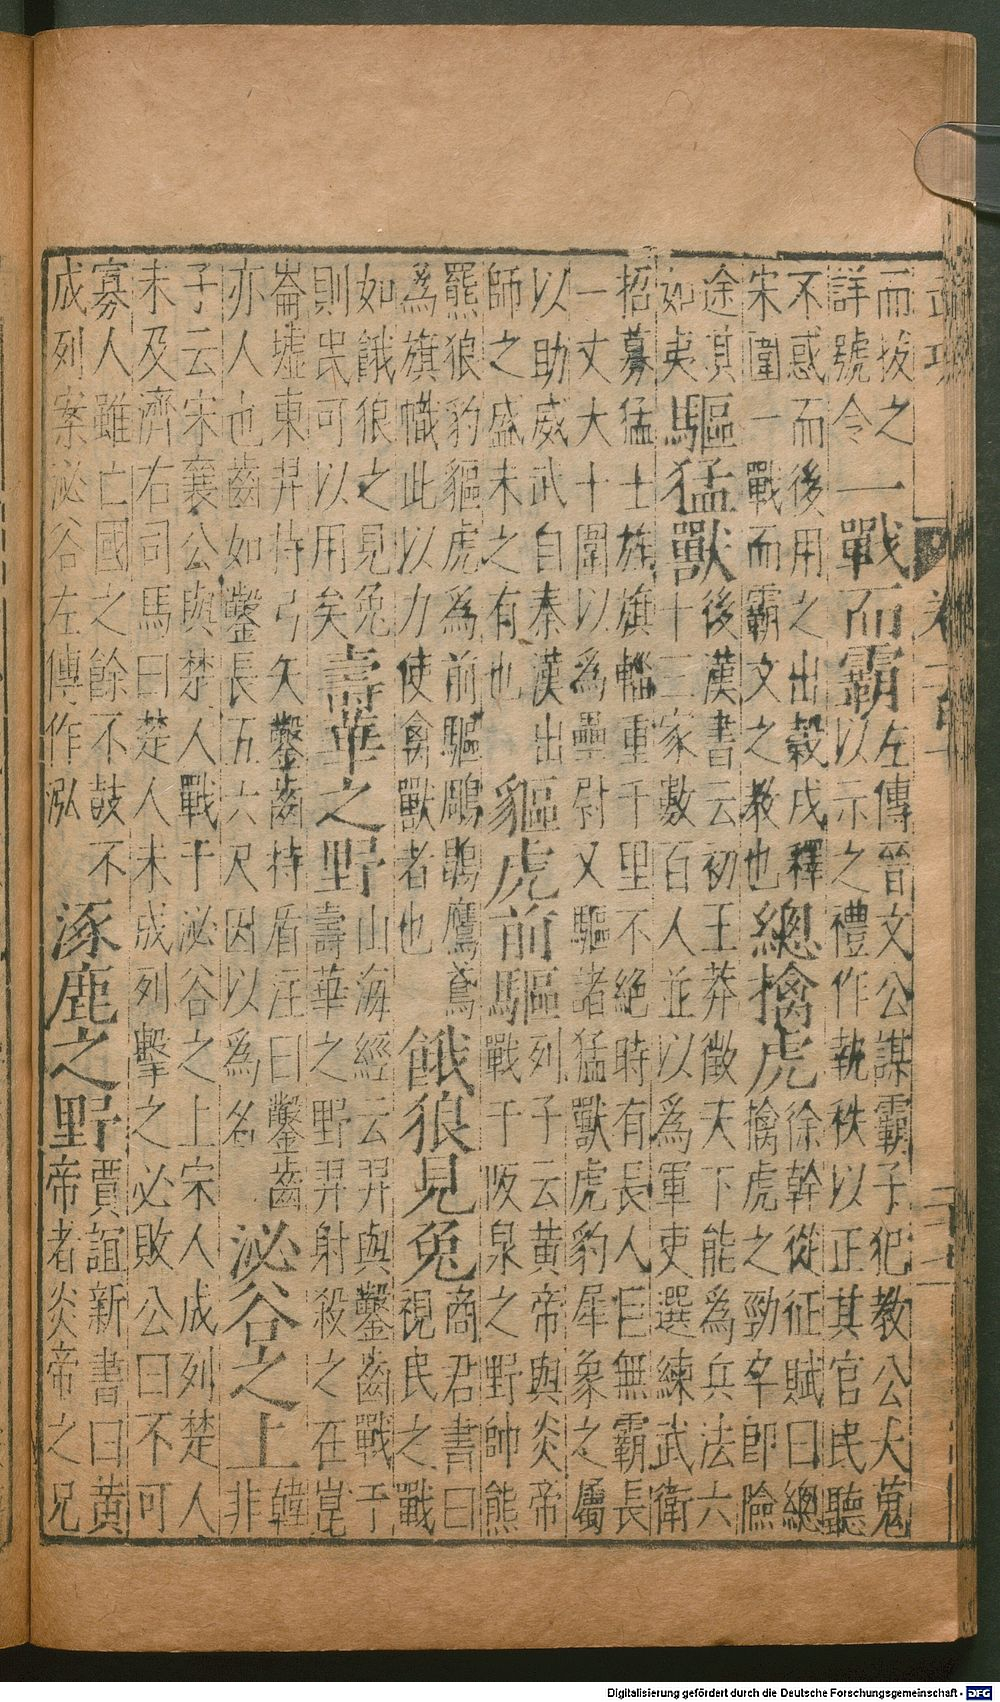 而拔之
詳號令
一戰而霸
左傳晉文公謀霸子犯教公大蒐
以示之禮作執秩以正其官民聽
不惑而後用之出穀戍釋
宋圍一戰而霸文之教也
總擒虎
徐幹從征賦曰總
擒虎之勁卒即險
途其
如夷
驅猛獸
後漢書云初王莽徵天下能為兵法六
十三家數百人並以為軍吏選練武衛
招募猛士旌旗輜重千里不絕時有長人巨無霸長
一丈大十圍以為壘尉又驅諸猛獸虎豹犀象之屬
以助威武自秦漢出
師之盛未之有也
貙虎前驅
列子云黃帝與炎帝
戰于阪泉之野帥熊
羆狼豹貙虎為前驅鵰鶡鷹鳶
為旗幟此以力使禽獸者也
餓狼見兔
商君書曰
視民之戰
如餓狼之見兔
則民可以用矣
壽華之野
山海經云羿與鑿齒戰于
壽華之野羿射殺之在崑
崙墟東羿持弓矢鑿齒持盾汪曰鑿齒
亦人也齒如鑿長五六尺因以為名
泌谷之上
韓
非
子云宋襄公與楚人戰于泌谷之上宋人成列楚人
未及濟右司馬曰楚人未成列擊之必敗公曰不可
寡人雖亡國之餘不鼓不
成列案泌谷左傳作泓
涿鹿之野
賈誼新書曰黃
帝者炎帝之兄
Digitalisierung gefördert durch die Deutsche Forschungsgemeinschaft - DFG